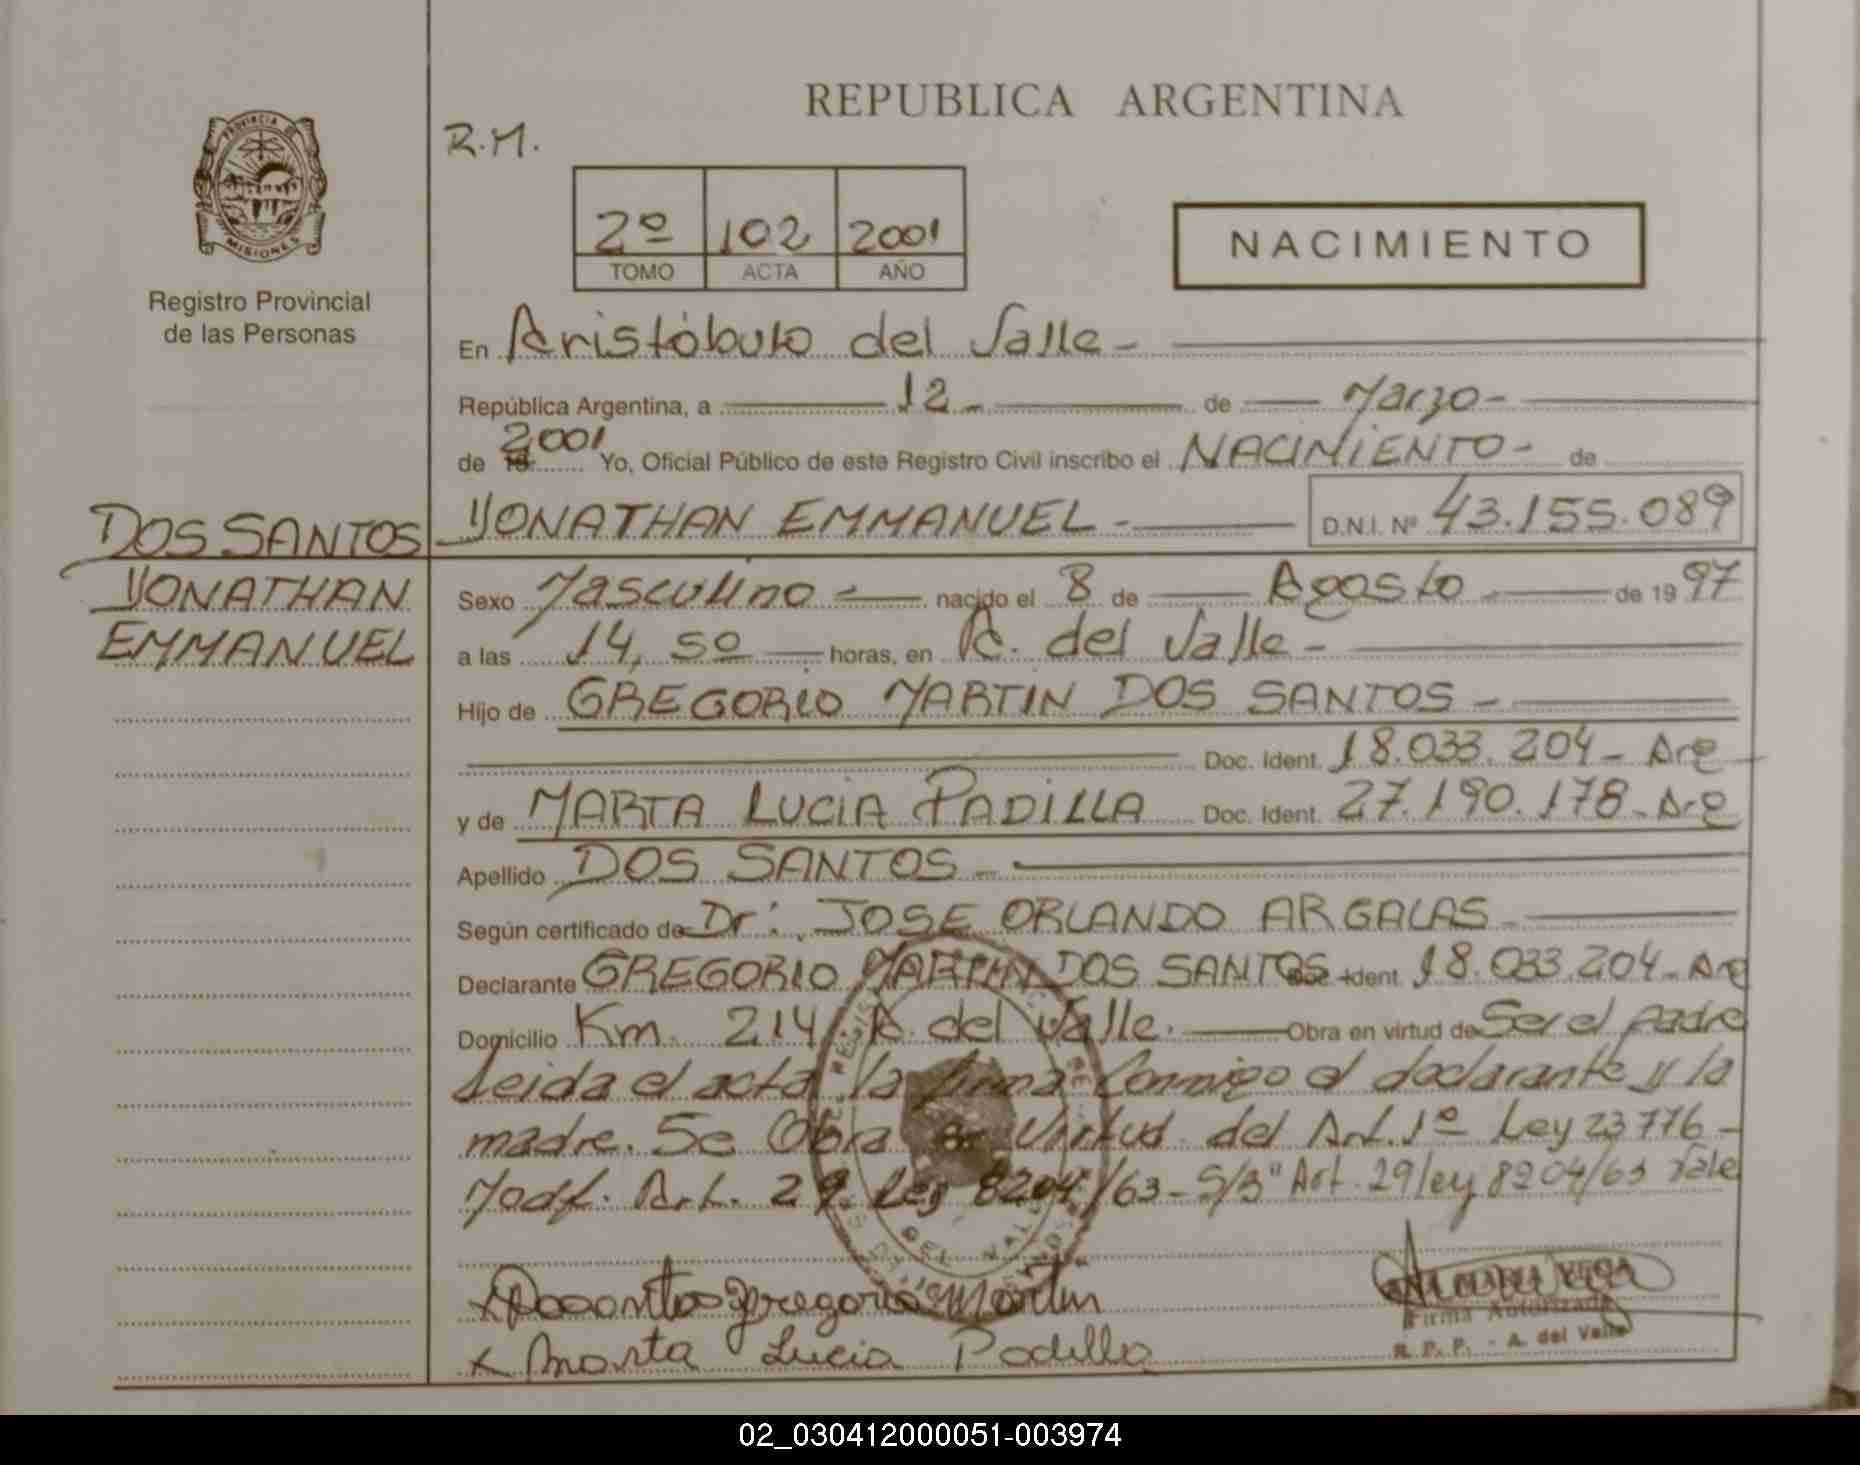 REPUBLICA ARGENTINA
R.M.
PROVINCIA DE
MISIONES
Registro Provincial
de las Personas
2º 102 2001
TOMO ACTA AÑO
NACIMIENTO
En Aristóbulo del Valle -
República Argentina, a 12 - de Marzo -
de 2001 Yo, Oficial Público de este Registro Civil inscribo el NACIMIENTO - de
JONATHAN EMMANUEL - D.N.I. Nº 43.155.089
DOS SANTOS
JONATHAN
EMMANUEL
Sexo Masculino - nacido el 8 de Agosto - de 1997
a las 14,50 horas, en A. del Valle -
Hijo de GREGORIO MARTIN DOS SANTOS -
Doc. Ident. 18.033.204 - Arg
y de MARTA LUCIA PADILLA Doc. Ident. 27.190.178 - Arg
Apellido DOS SANTOS -
Según certificado de Dr: JOSE ORLANDO ARGALAS -
Declarante GREGORIO MARTIN DOS SANTOS Doc. Ident. 18.033.204 - Arg
Domicilio Km. 214 A. del Valle. Obra en virtud de Ser el padre
Leida el acta la firma Conmigo el declarante y la
madre. Se Obra en Virtud del Art. 1º Ley 23776 -
Modf. Art. 29 Ley 8204/63 - S/B" Art. 29 ley 8204/63 Vale
Dosantos gregorio Martin
Marta Lucia Padilla
ANA MARIA VEGA
Firma Autorizada
R. P. P. - A. del Valle
02_030412000051-003974